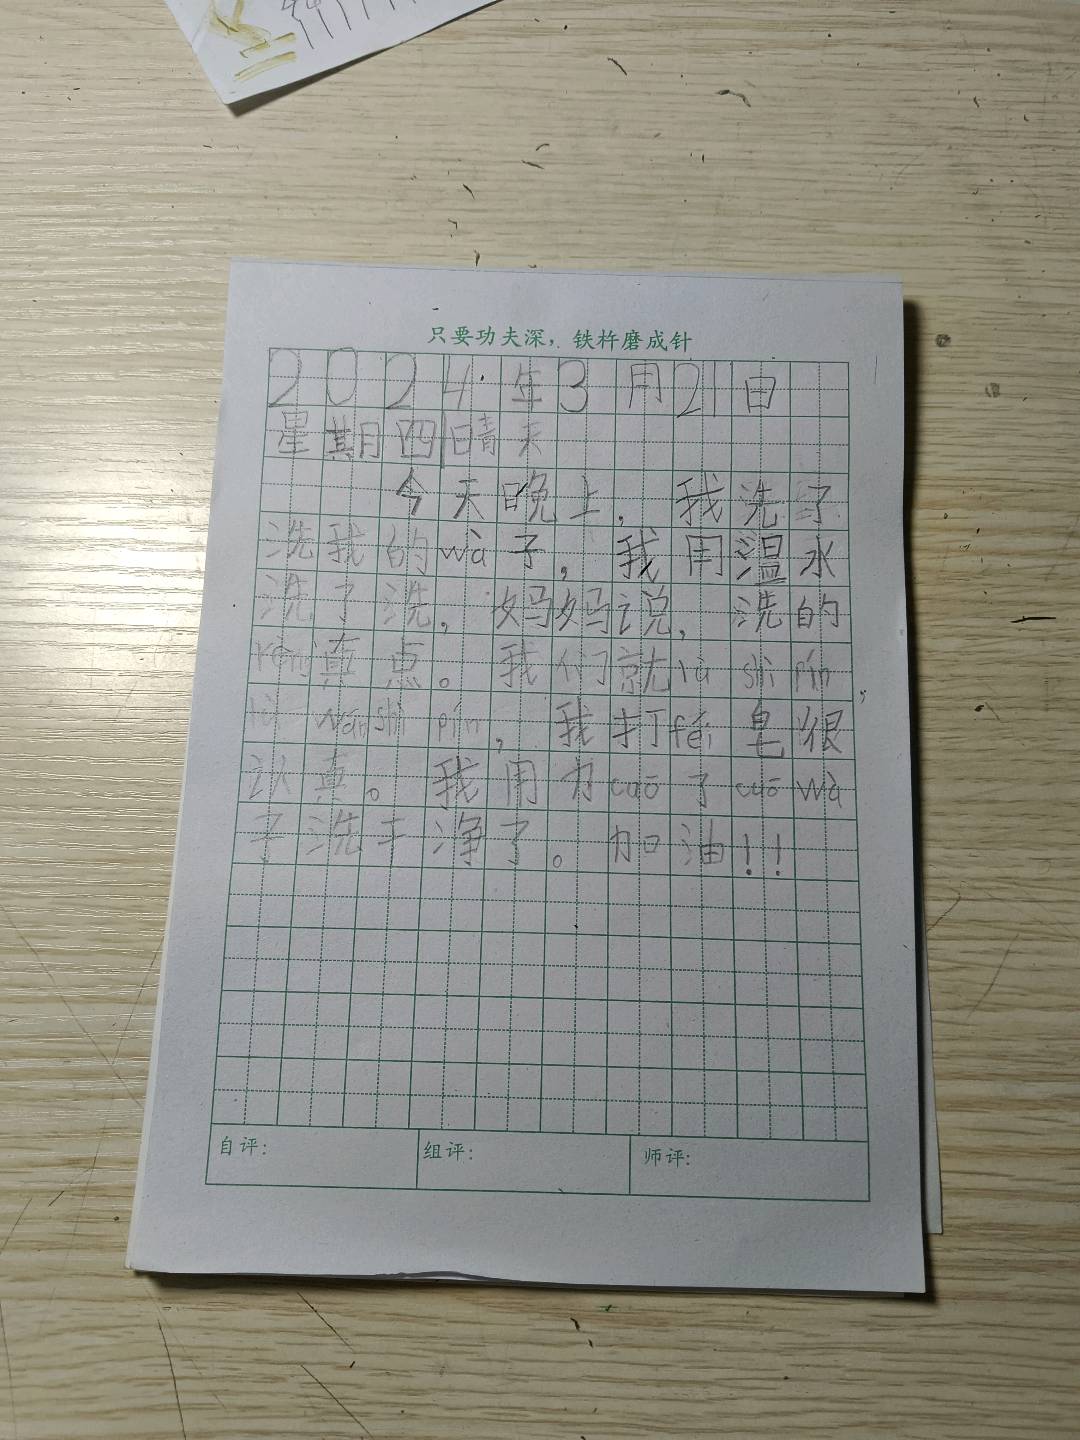 只要功夫深，铁杵磨成针
2024年3月21日
星期四晴天
今天晚上，我洗了
洗我的wà子，我用温水
洗了洗，妈妈说，洗的
rèn真点。我们就lù shì pín，
lù wán shì pín，我打féi皂很
认真。我用力cuō了cuō wà
子洗干净了。加油！！
自评： 组评： 师评：